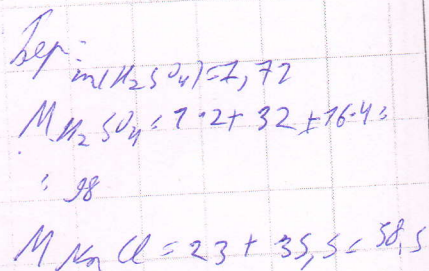 Бер:
m(H₂SO₄)=1,72
M H₂SO₄ = 1·2+32+16·4=
= 98
M Na Cl = 23+35,5=58,5